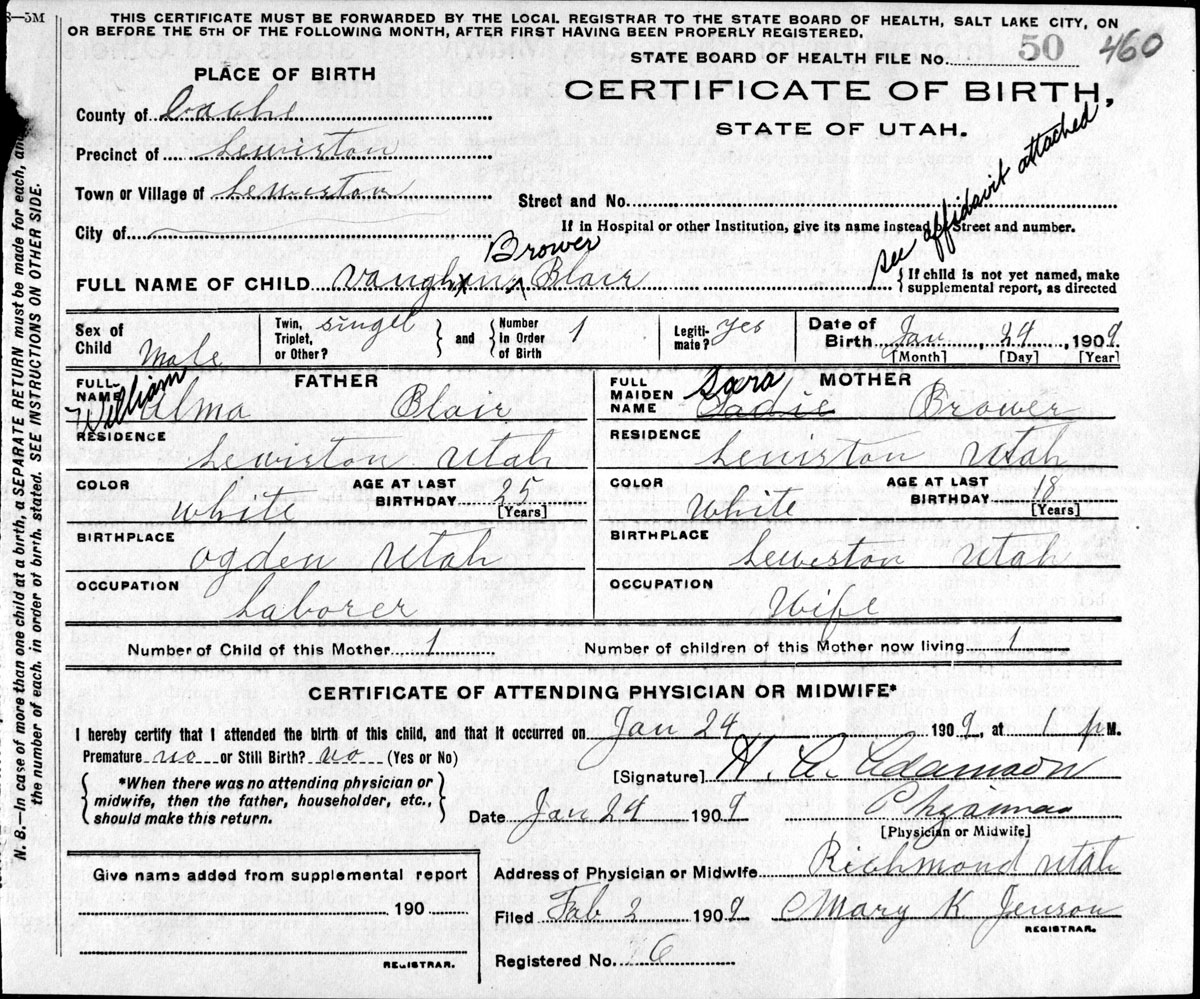 8—5M
THIS CERTIFICATE MUST BE FORWARDED BY THE LOCAL REGISTRAR TO THE STATE BOARD OF HEALTH, SALT LAKE CITY, ON
OR BEFORE THE 5TH OF THE FOLLOWING MONTH, AFTER FIRST HAVING BEEN PROPERLY REGISTERED.
STATE BOARD OF HEALTH FILE No. 50 460
PLACE OF BIRTH
CERTIFICATE OF BIRTH,
STATE OF UTAH.
County of Cache
Precinct of Lewiston
Town or Village of Lewiston
City of
Street and No.
If in Hospital or other Institution, give its name instead of Street and number.
see affidavit attached
Brower
FULL NAME OF CHILD Vaughn Blair
{ If child is not yet named, make
supplemental report, as directed
Sex of Child Male
Twin, Triplet, or Other? singel } and { Number in Order of Birth 1
Legitimate? yes
Date of Birth Jan 24, 1909
[Month] [Day] [Year]
FATHER
FULL NAME William Alma Blair
RESIDENCE Lewiston Utah
COLOR White
AGE AT LAST BIRTHDAY 25 [Years]
BIRTHPLACE Ogden Utah
OCCUPATION Laborer
MOTHER
FULL MAIDEN NAME Sara Sadie Brower
RESIDENCE Lewiston Utah
COLOR White
AGE AT LAST BIRTHDAY 18 [Years]
BIRTHPLACE Leweston Utah
OCCUPATION Wife
Number of Child of this Mother 1
Number of children of this Mother now living 1
CERTIFICATE OF ATTENDING PHYSICIAN OR MIDWIFE*
I hereby certify that I attended the birth of this child, and that it occurred on Jan 24 1909, at 1 pM.
Premature no or Still Birth? no (Yes or No)
{ *When there was no attending physician or
midwife, then the father, householder, etc.,
should make this return. }
[Signature] H. A. Adamson
Date Jan 24 1909
[Physician or Midwife]
Address of Physician or Midwife Richmond Utah
Filed Feb 2 1909 Mary K Jenson
REGISTRAR.
Registered No. 6
Give name added from supplemental report
190
REGISTRAR.
N. B.—In case of more than one child at a birth, a SEPARATE RETURN must be made for each, and
the number of each, in order of birth, stated. SEE INSTRUCTIONS ON OTHER SIDE.